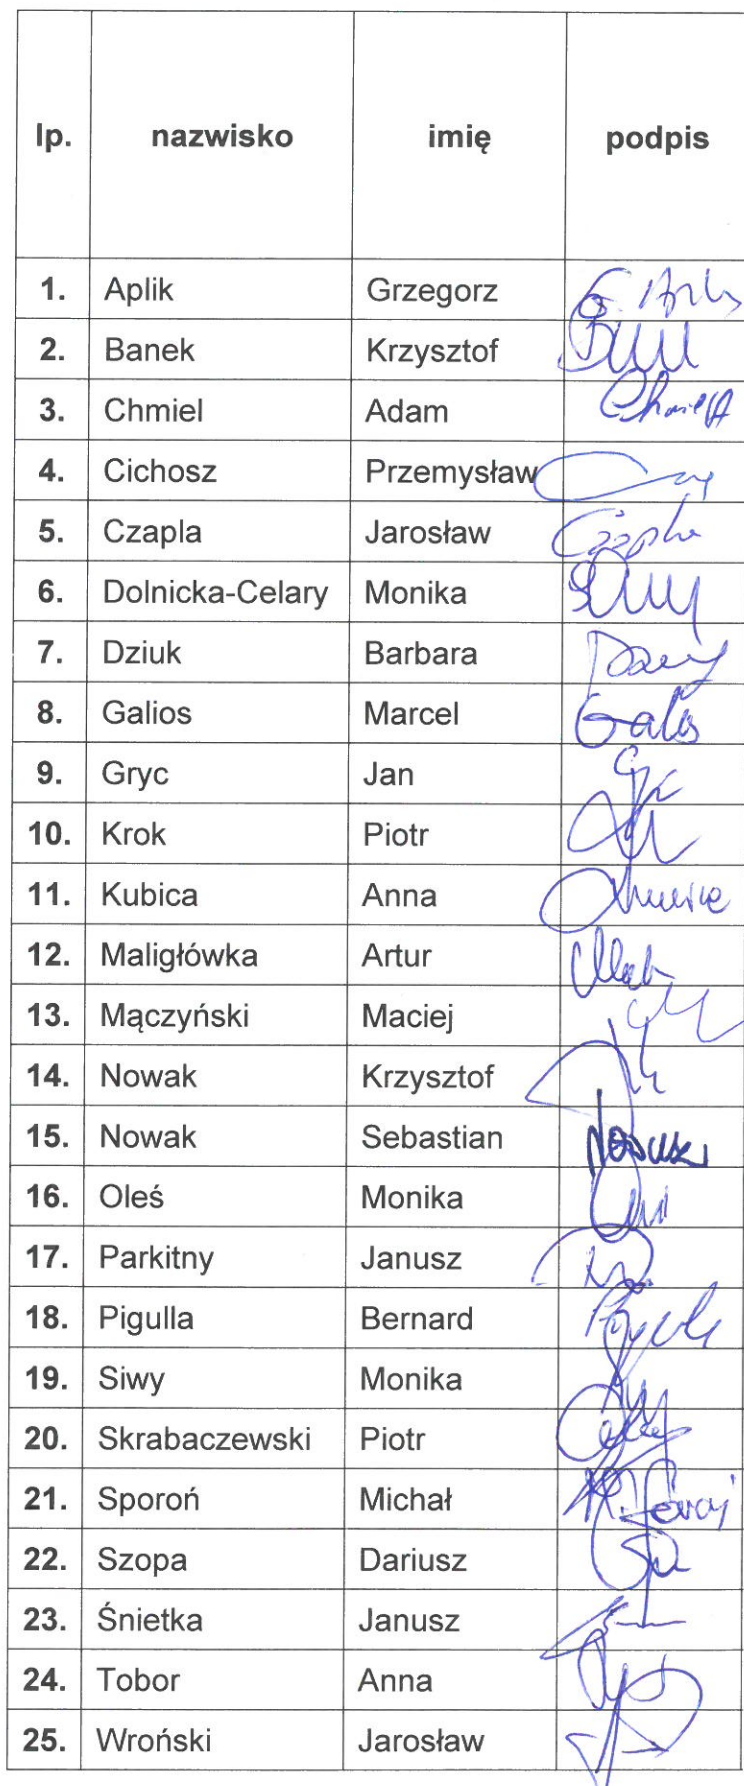 lp. nazwisko imię podpis
1. Aplik Grzegorz
2. Banek Krzysztof
3. Chmiel Adam
4. Cichosz Przemysław
5. Czapla Jarosław Czapla
6. Dolnicka-Celary Monika
7. Dziuk Barbara
8. Galios Marcel Galios
9. Gryc Jan
10. Krok Piotr
11. Kubica Anna
12. Maligłówka Artur
13. Mączyński Maciej
14. Nowak Krzysztof
15. Nowak Sebastian
16. Oleś Monika
17. Parkitny Janusz
18. Pigulla Bernard
19. Siwy Monika
20. Skrabaczewski Piotr
21. Sporoń Michał
22. Szopa Dariusz
23. Śnietka Janusz
24. Tobor Anna
25. Wroński Jarosław